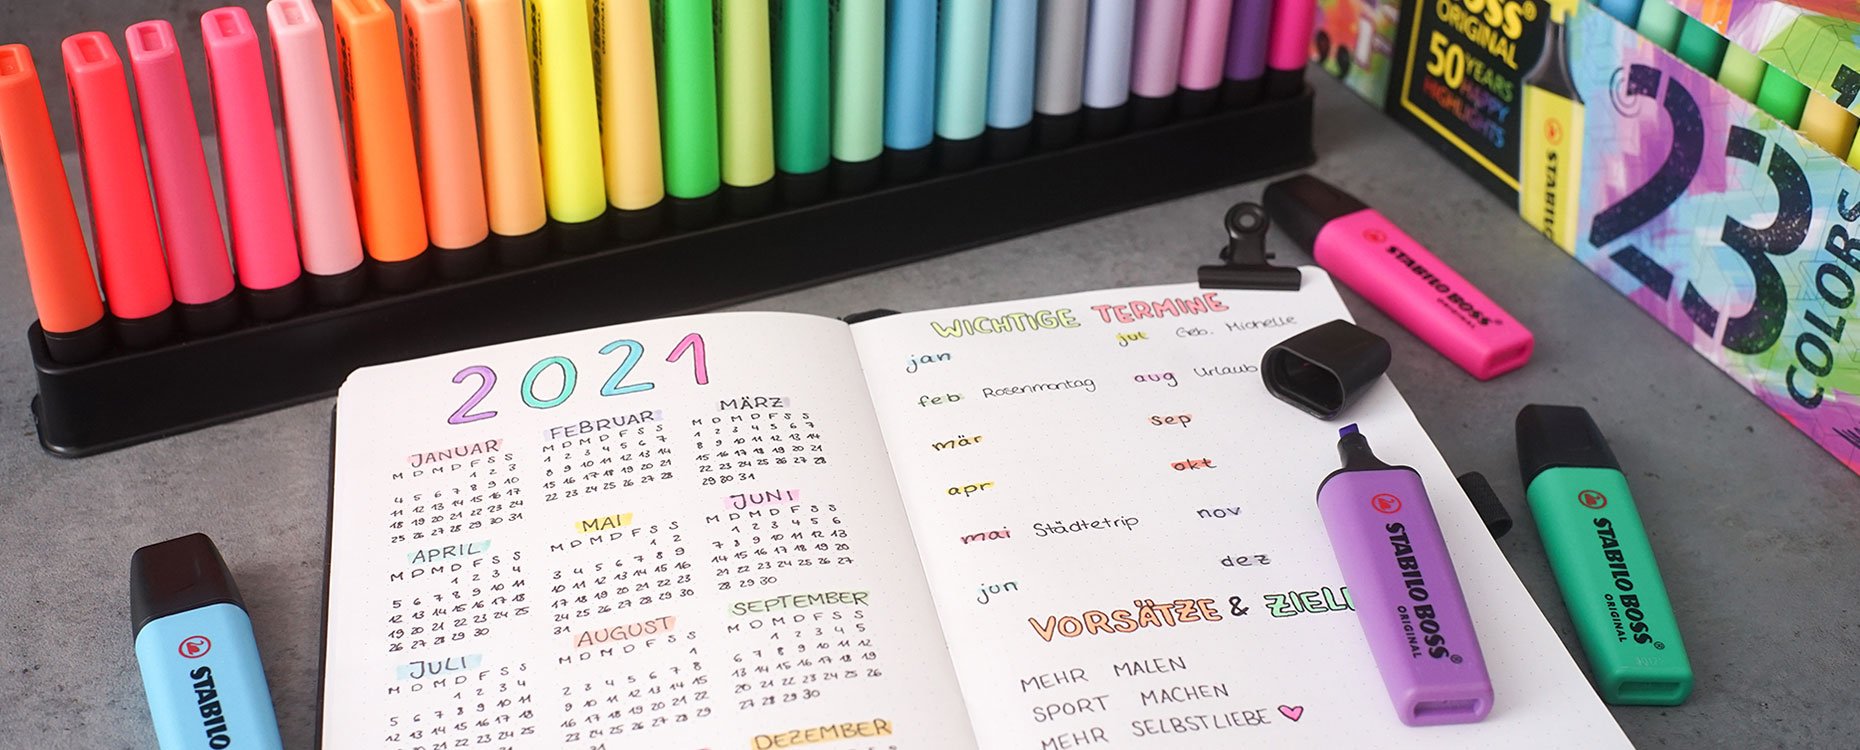 BOSS®
ORIGINAL
50 YEARS
HAPPY
HIGHLIGHTS
STABILO
23
COLORS
STABILO BOSS®
ORIGINAL
2021
JANUAR
M D M D F S S
1 2 3
4 5 6 7 8 9 10
11 12 13 14 15 16 17
18 19 20 21 22 23 24
25 26 27 28 29 30 31
FEBRUAR
M D M D F S S
1 2 3 4 5 6 7
8 9 10 11 12 13 14
15 16 17 18 19 20 21
22 23 24 25 26 27 28
MÄRZ
M D M D F S S
1 2 3 4 5 6 7
8 9 10 11 12 13 14
15 16 17 18 19 20 21
22 23 24 25 26 27 28
29 30 31
APRIL
M D M D F S S
1 2 3 4
5 6 7 8 9 10 11
12 13 14 15 16 17 18
19 20 21 22 23 24 25
26 27 28 29 30
MAI
M D M D F S S
1 2
3 4 5 6 7 8 9
10 11 12 13 14 15 16
17 18 19 20 21 22 23
24 25 26 27 28 29 30
31
JUNI
M D M D F S S
1 2 3 4 5 6
7 8 9 10 11 12 13
14 15 16 17 18 19 20
21 22 23 24 25 26 27
28 29 30
JULI
M D M D F S S
1 2 3 4
5 6 7 8 9 10 11
12 13 14 15 16 17 18
AUGUST
M D M D F S S
1
2 3 4 5 6 7 8
9 10 11 12 13 14 15
16 17 18 19 20 21 22
23 24 25 26 27 28 29
SEPTEMBER
M D M D F S S
1 2 3 4 5
6 7 8 9 10 11 12
13 14 15 16 17 18 19
20 21 22 23 24 25 26
27 28 29 30
DEZEMBER
WICHTIGE TERMINE
jan
feb Rosenmontag
mär
apr
mai Städtetrip
jun
jul Geb. Michelle
aug Urlaub
sep
okt
nov
dez
VORSÄTZE & ZIELE
MEHR MALEN
SPORT MACHEN
MEHR SELBSTLIEBE
STABILO BOSS®
ORIGINAL
STABILO BOSS®
ORIGINAL
STABILO